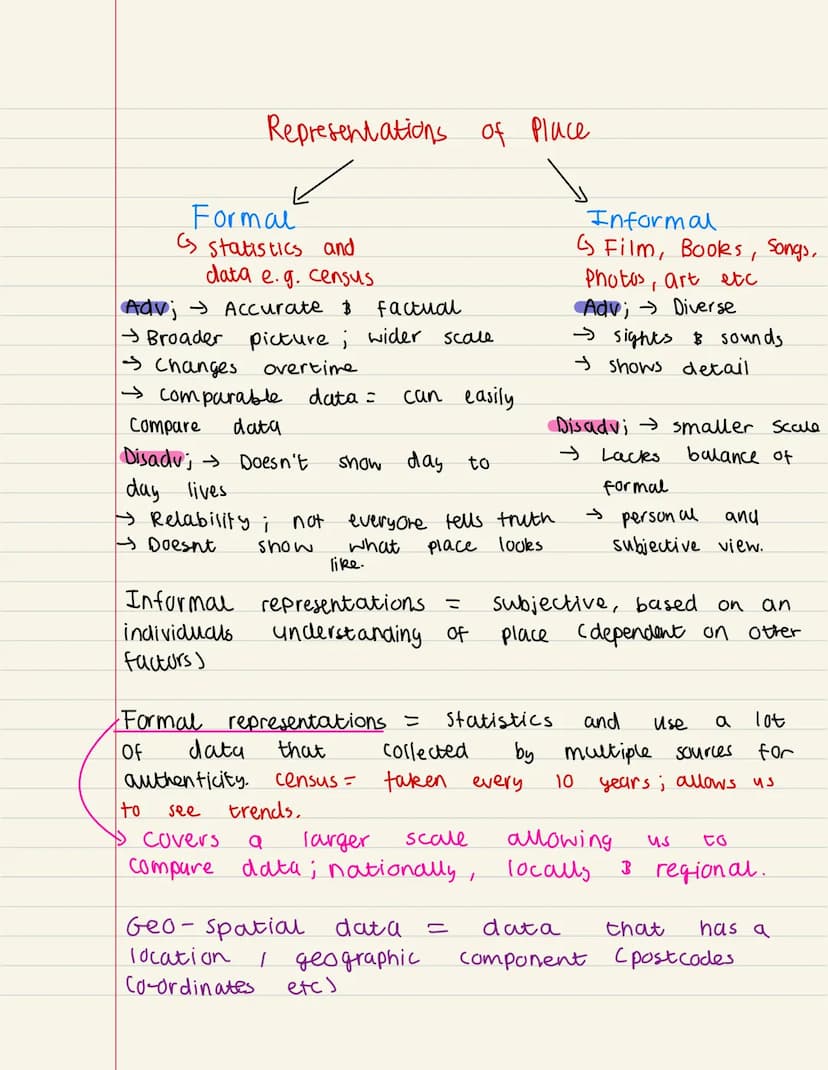 Representations of Place
Formal
↳ statistics and
data e.g. census
Adv; → Accurate & factual
→ Broader picture; wider scale
→ Changes overtime
→ Comparable data = can easily
compare data
Disadv; → Doesn't show day to
day lives
→ Relability; not everyone tells truth
→ Doesnt show what place looks
like.
Informal
↳ Film, Books, Songs,
Photos, art etc
Adv; → Diverse
→ sights & sounds
→ shows detail
Disadv; → smaller scale
→ Lacks balance of
formal
→ personal and
subjective view.
Informal representations = subjective, based on an
individuals understanding of place (dependent on other
factors)
Formal representations = statistics and use a lot
of data that collected by multiple sources for
authenticity. census = taken every 10 years; allows us
to see trends.
→ covers a larger scale allowing us to
compare data; nationally, locally & regional.
Geo-spatial data = data that has a
location / geographic component (postcodes
co-ordinates etc)